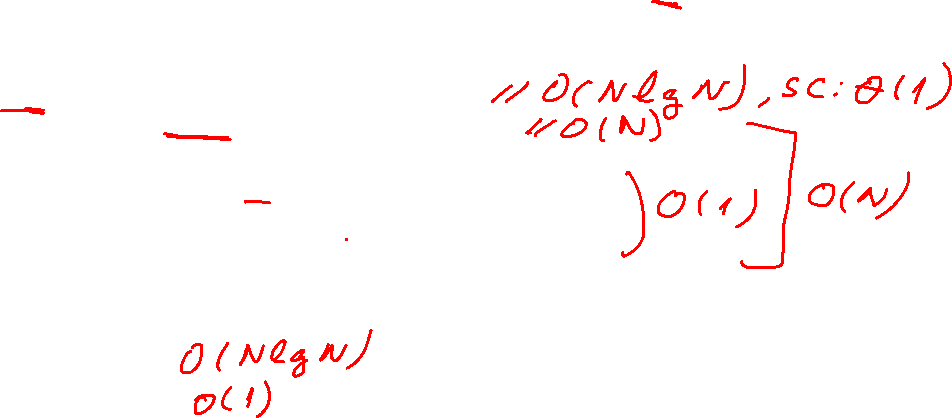 // O(NlgN), SC: θ(1)
// O(N)
O(1) O(N)
O(NlgN)
O(1)